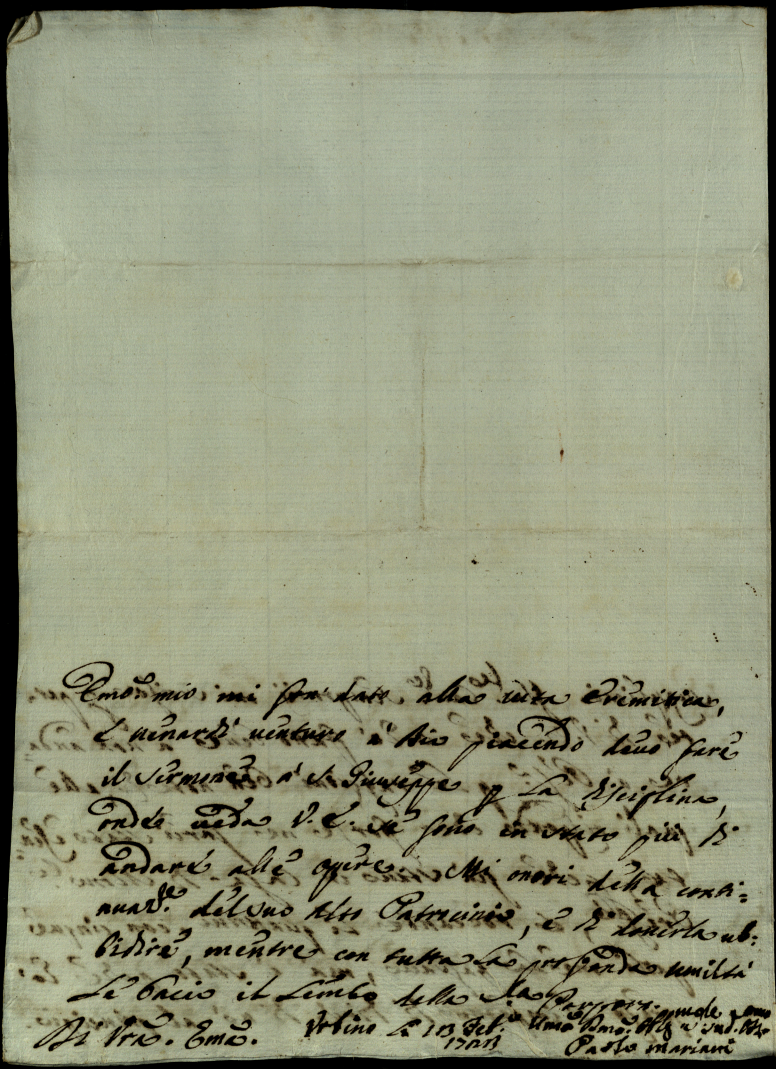 Emo. mio mi son dato alla vita Eremitica,
e venardi venturo à Dio piacendo devo fare
il sermone à S. Giuseppe p. La disciplina,
onde veda V. E. se sono in stato più di
andare alle opere. Mi onori della conti=
nuaz.e del suo Alto Patrocinio, e di doverla ub=
bidire, mentre con tutta La profonda umiltà
Le bacio il Lembo della Sa. Porpora.
Di Vra. Emã. Urbino Li 13 Feb.o
Paolo Mariani